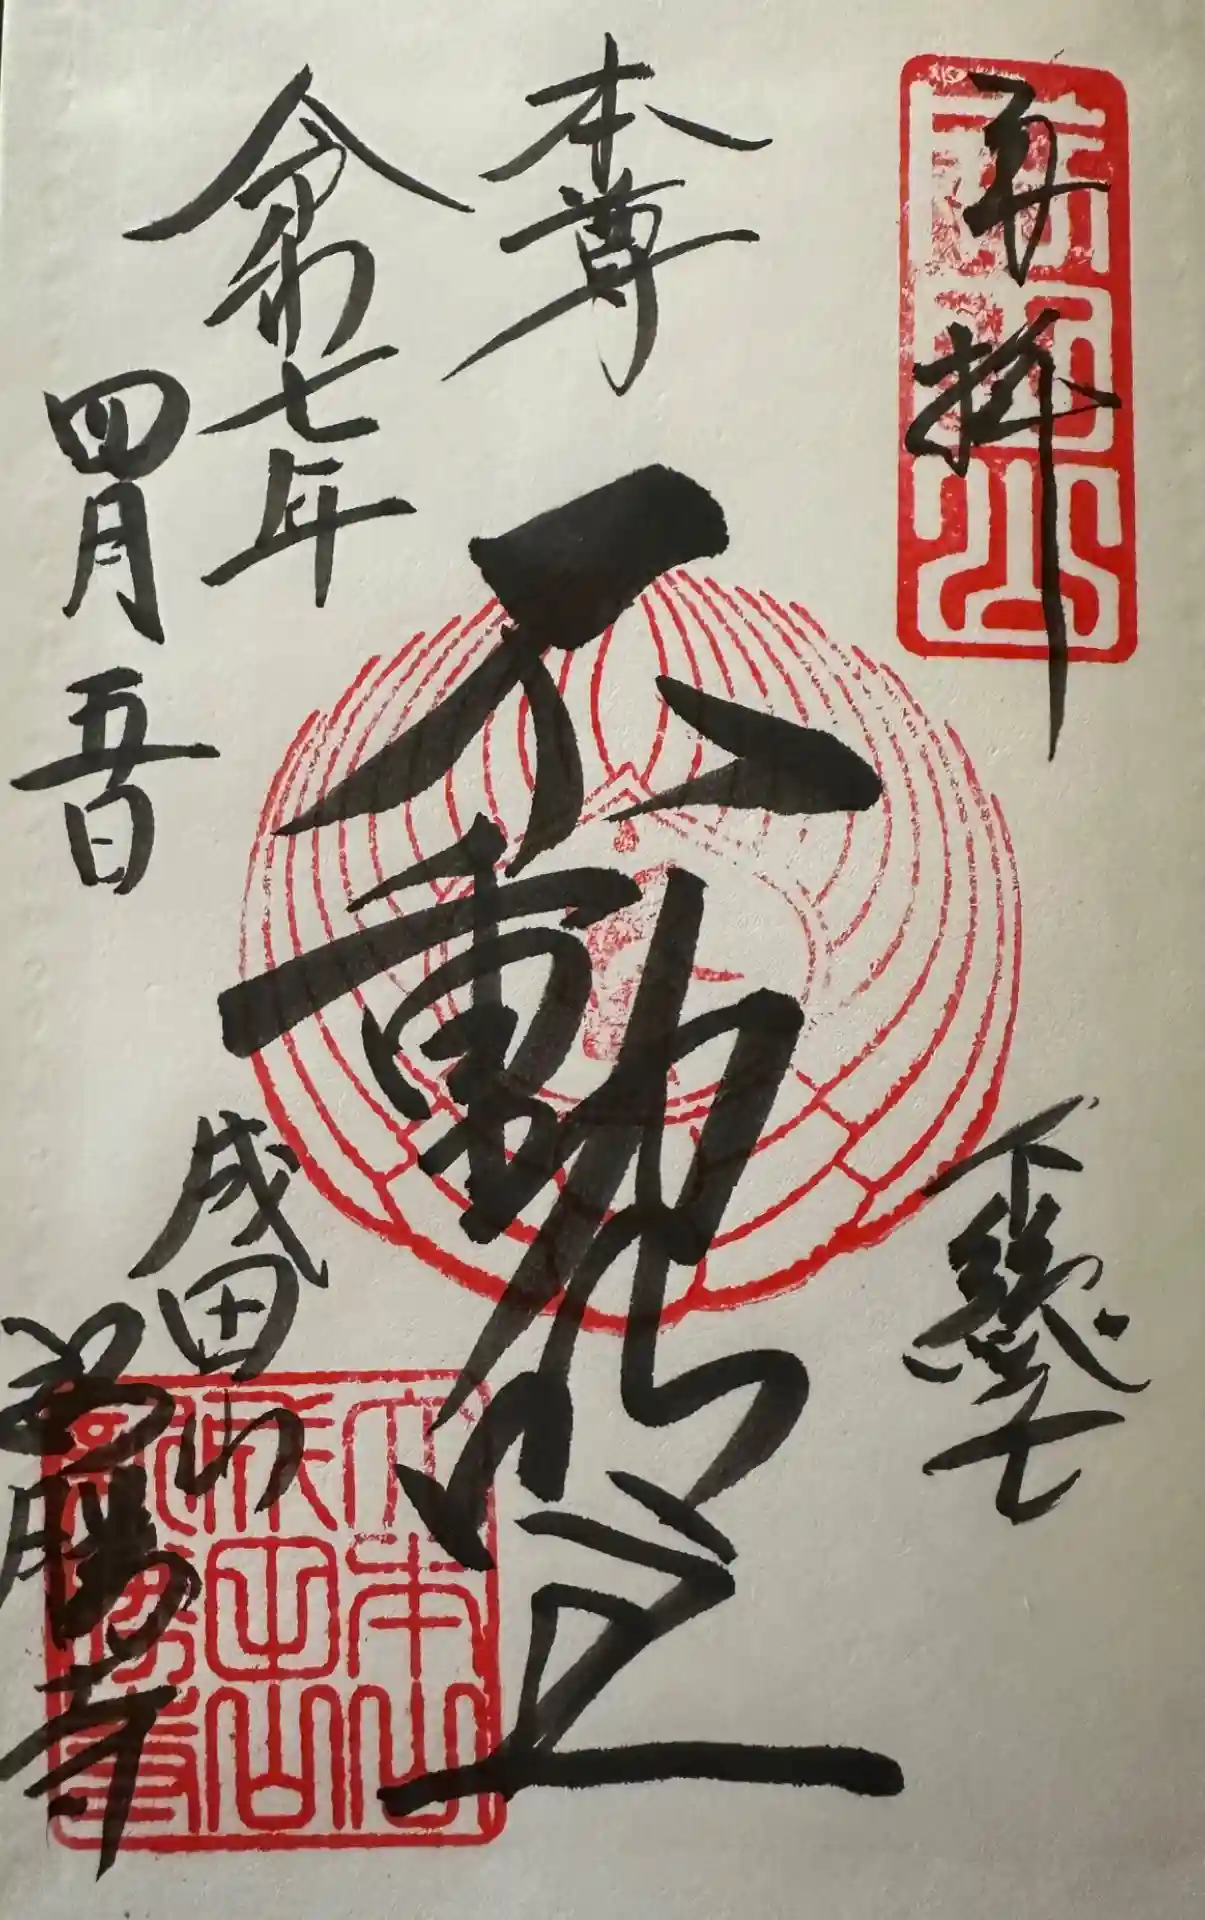 奉拝
本尊
不動明王
令和七年
四月五日
成田山
新勝寺
大本山
成田山
新勝寺